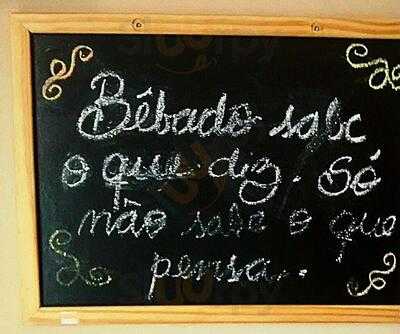 Bêbado sabe
o que diz. Só
não sabe o que
pensa...